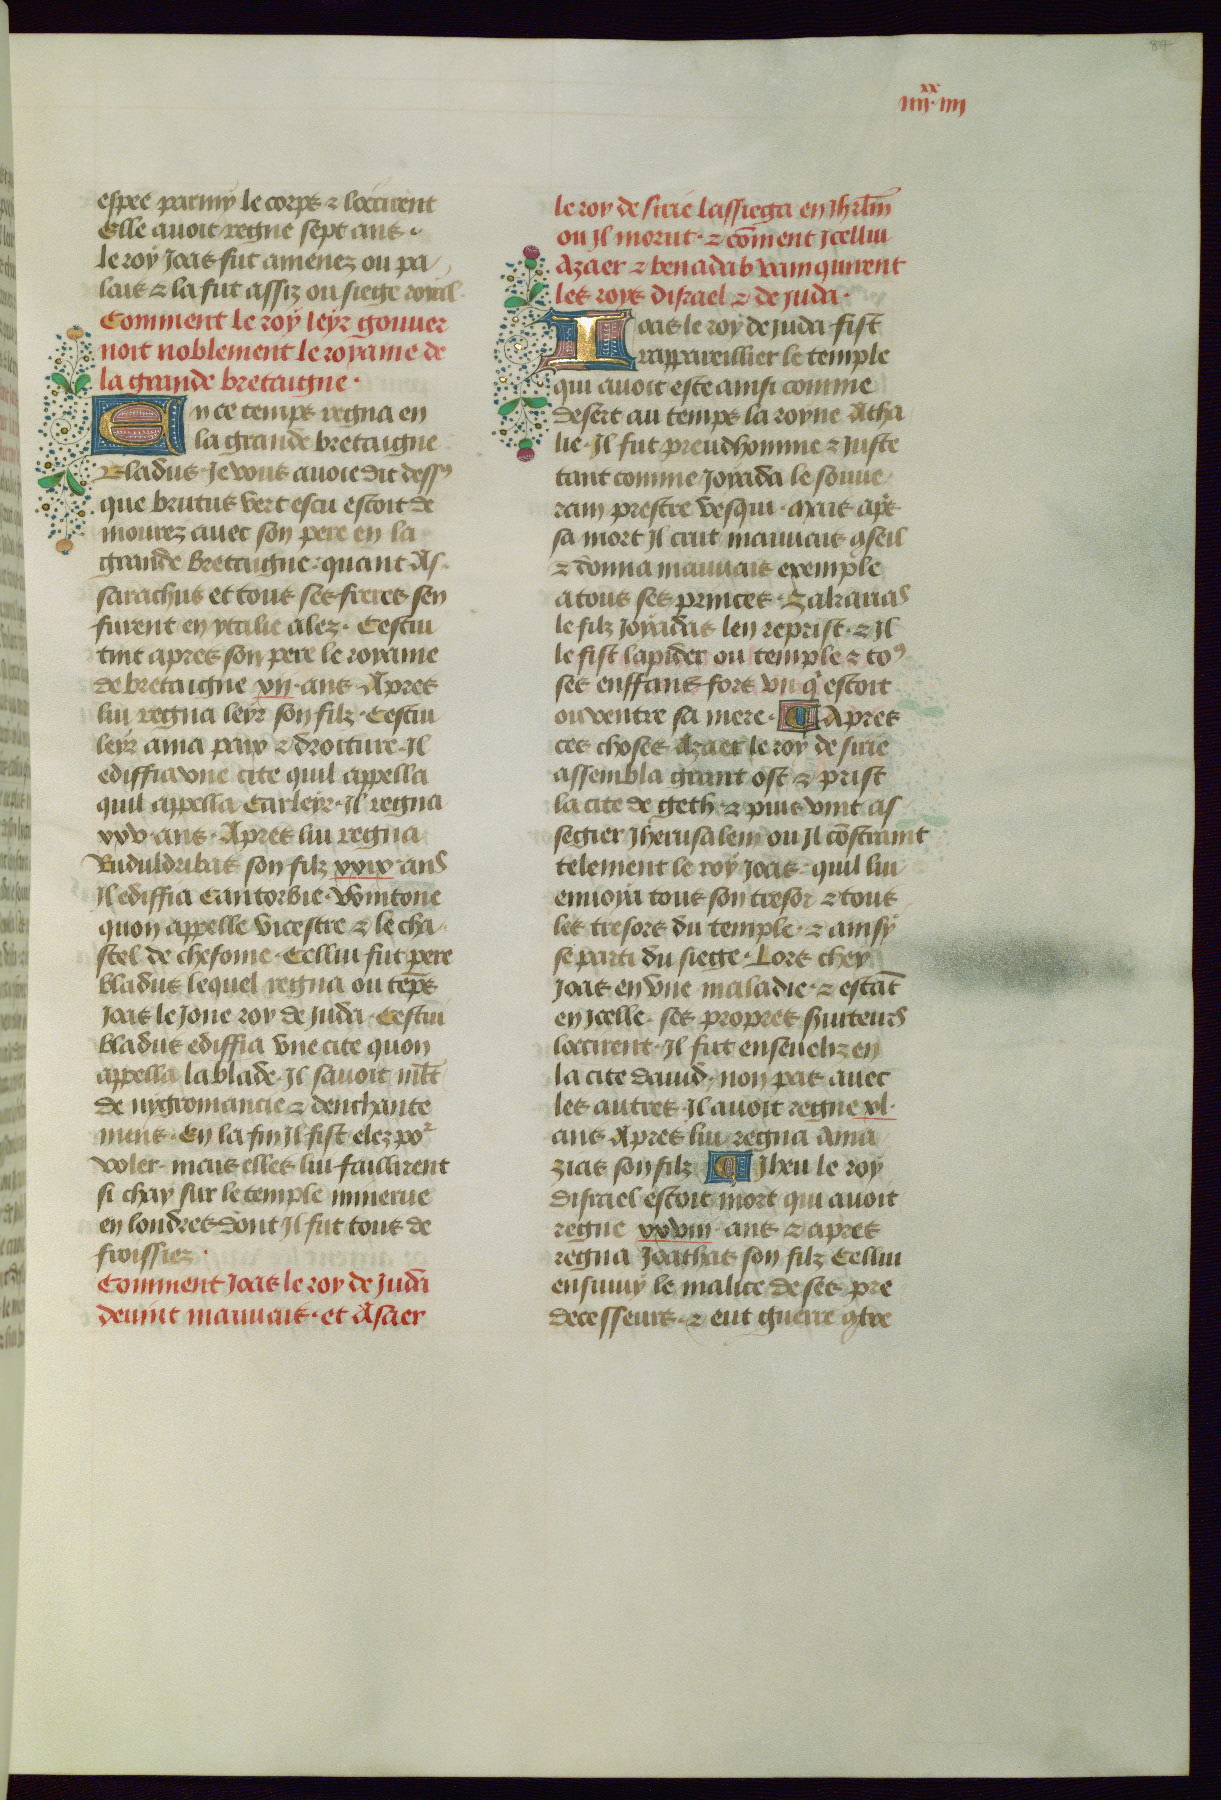 84
xx
iiii·iiii
espee parmy le corps ⁊ loccirent
Elle auoit regne sept ans·
le roy Joas fut amenez ou pa
lais ⁊ la fut assiz ou siege roial·
Comment le roy leyr gouuer
noit noblement le royame de
la grande bretaigne·
En ce temps regna en
la grande bretaigne
Bladus· Je vous auoie dit dessꝰ
que brutus vert escu estoit de
mourez auec son pere en la
grande Bretaigne· quant As
sarachus et tous ses freres sen
furent en ytalie alez· Cestui
tint apres son pere le royame
de bretaigne xii· ans· Apres
lui regna leyr son filz· Cestui
leyr ama paix ⁊ droiture· Il
ediffia vne cite quil appella
quil appella Carleyr· Il regna
xxv· ans· Apres lui regna
Ruduldribas son filz xxix· ans
Il ediffia Cantorbie· vointone
quon appelle vicestre ⁊ le cha
stel de chefonie· Cellui fut pere
bladus lequel regna ou tēps
Joas le Jone roy de Juda· Cestui
bladus ediffia vne cite quon
appella la blade· Il sauoit mlt
de nygromancie ⁊ denchante
mens· En la fin Il fist elez por
voler· mais elles lui faillirent
si chay sur le temple minerue
en londres dont Il fut tous de
froissiez·
Comment Joas le roy de Juda
deuint mauuais· et Asaer
le roy de sirie lassiega en Jhrlm
ou Jl morut· ⁊ cōment Jcellui
Azaer ⁊ benadab vainquirent
les roys disrael ⁊ de Juda·
Ioas le roy de Juda fist
rappareillier le temple
qui auoit este ainsi comme
desert au temps la royne Atha
lie· Il fut preudhomme ⁊ Juste
tant comme Joyada le souue
rain prestre vesqui· Mais aps
sa mort Il crut mauuais ꝯseil
⁊ donna mauuais exemple
a tous ses princes· Zakarias
le filz Joyadas len reprist· ⁊ Il
le fist lapider ou temple ⁊ toꝰ
ses enffans fors vn q' estoit
ou ventre sa mere· Apres
ces choses Azaer le roy de sirie
assembla grant ost ⁊ prist
la cite de geth· ⁊ puis vint as
segier Jherusalem ou Il cōstraint
telement le roy Joas· quil lui
enuoya tout son tresor ⁊ tous
les tresors du temple· ⁊ ainsy
se parti du siege· Lors chey
Joas en vne maladie· ⁊ estāt
en Jcelle· ses propres seruiteurs
loccirent· Il fut enseueliz en
la cite dauid· non pas auec
les autres· Il auoit regne xl·
ans· Apres lui regna Ama
zias son filz Jheu le roy
disrael estoit mort qui auoit
regne xxviii· ans ⁊ apres
regna Joathas son filz Cellui
ensiuuy le malice de ses pre
decesseurs· ⁊ eut guerre ꝯtre